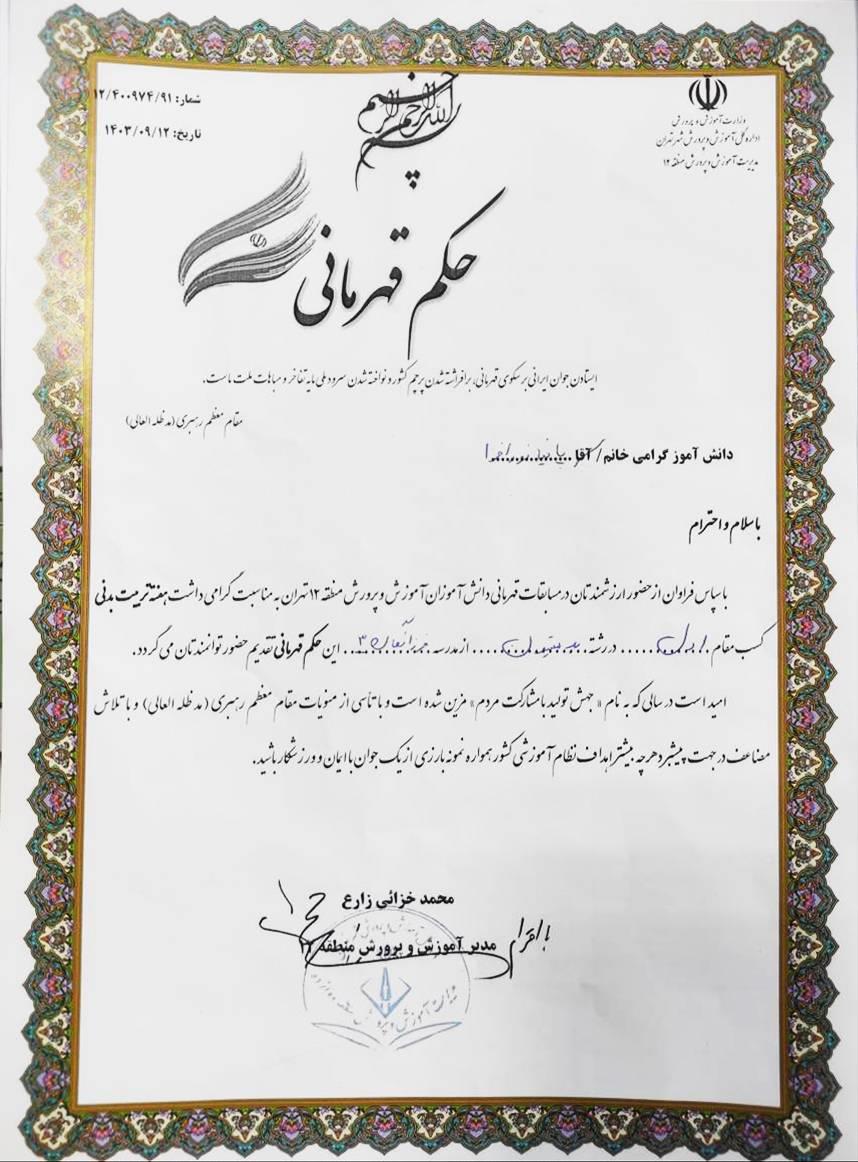 بسم الله الرحمن الرحیم
وزارت آموزش و پرورش
اداره کل آموزش و پرورش شهر تهران
مدیریت آموزش و پرورش منطقه ۱۲
شماره: ۱۲/۴۰۰۹۷۴/۹۱
تاریخ: ۱۴۰۳/۰۹/۱۲
حکم قهرمانی
ایستادن جوان ایرانی بر سکوی قهرمانی، برافراشته شدن پرچم کشور و نواخته شدن سرود ملی مایه تفاخر و مباهات ملت ماست.
مقام معظم رهبری (مدظله العالی)
دانش آموز گرامی خانم/آقا
باسلام و احترام
باسپاس فراوان از حضور ارزشمندتان در مسابقات قهرمانی دانش آموزان آموزش و پرورش منطقه ۱۲ تهران به مناسبت گرامی داشت هفته تربیت بدنی
کسب مقام ...... در رشته ...... از مدرسه ...... این حکم قهرمانی تقدیم حضور توانمندتان می گردد.
امید است در سالی که به نام «جهش تولید با مشارکت مردم» مزین شده است و با تأسی از منویات مقام معظم رهبری (مدظله العالی) و با تلاش
مضاعف در جهت پیشبرد هرچه بیشتر اهداف نظام آموزشی کشور همواره نمونه بارزی از یک جوان با ایمان و ورزشکار باشید.
محمد خزائی زارع
مدیر آموزش و پرورش منطقه ۱۲
با احترام